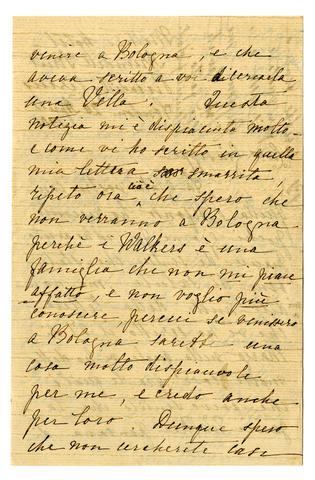 venire a Bologna, e che
aveva scritto a voi di cercarla
una Villa. Questa
notizia mi è dispiaciuta molto
e come ve ho scritto in quella
mia lettera smarrita,
ripeto ora cioè che spero che
non verranno a Bologna
perchè e Walkers è una
famiglia che non mi piace
affatto, e non voglio più
conoscere, perchè se venissero
a Bologna sarebbe una
cosa molto dispiacevole
per me, e credo anche
per loro. Dunque spero
che non cercherete case